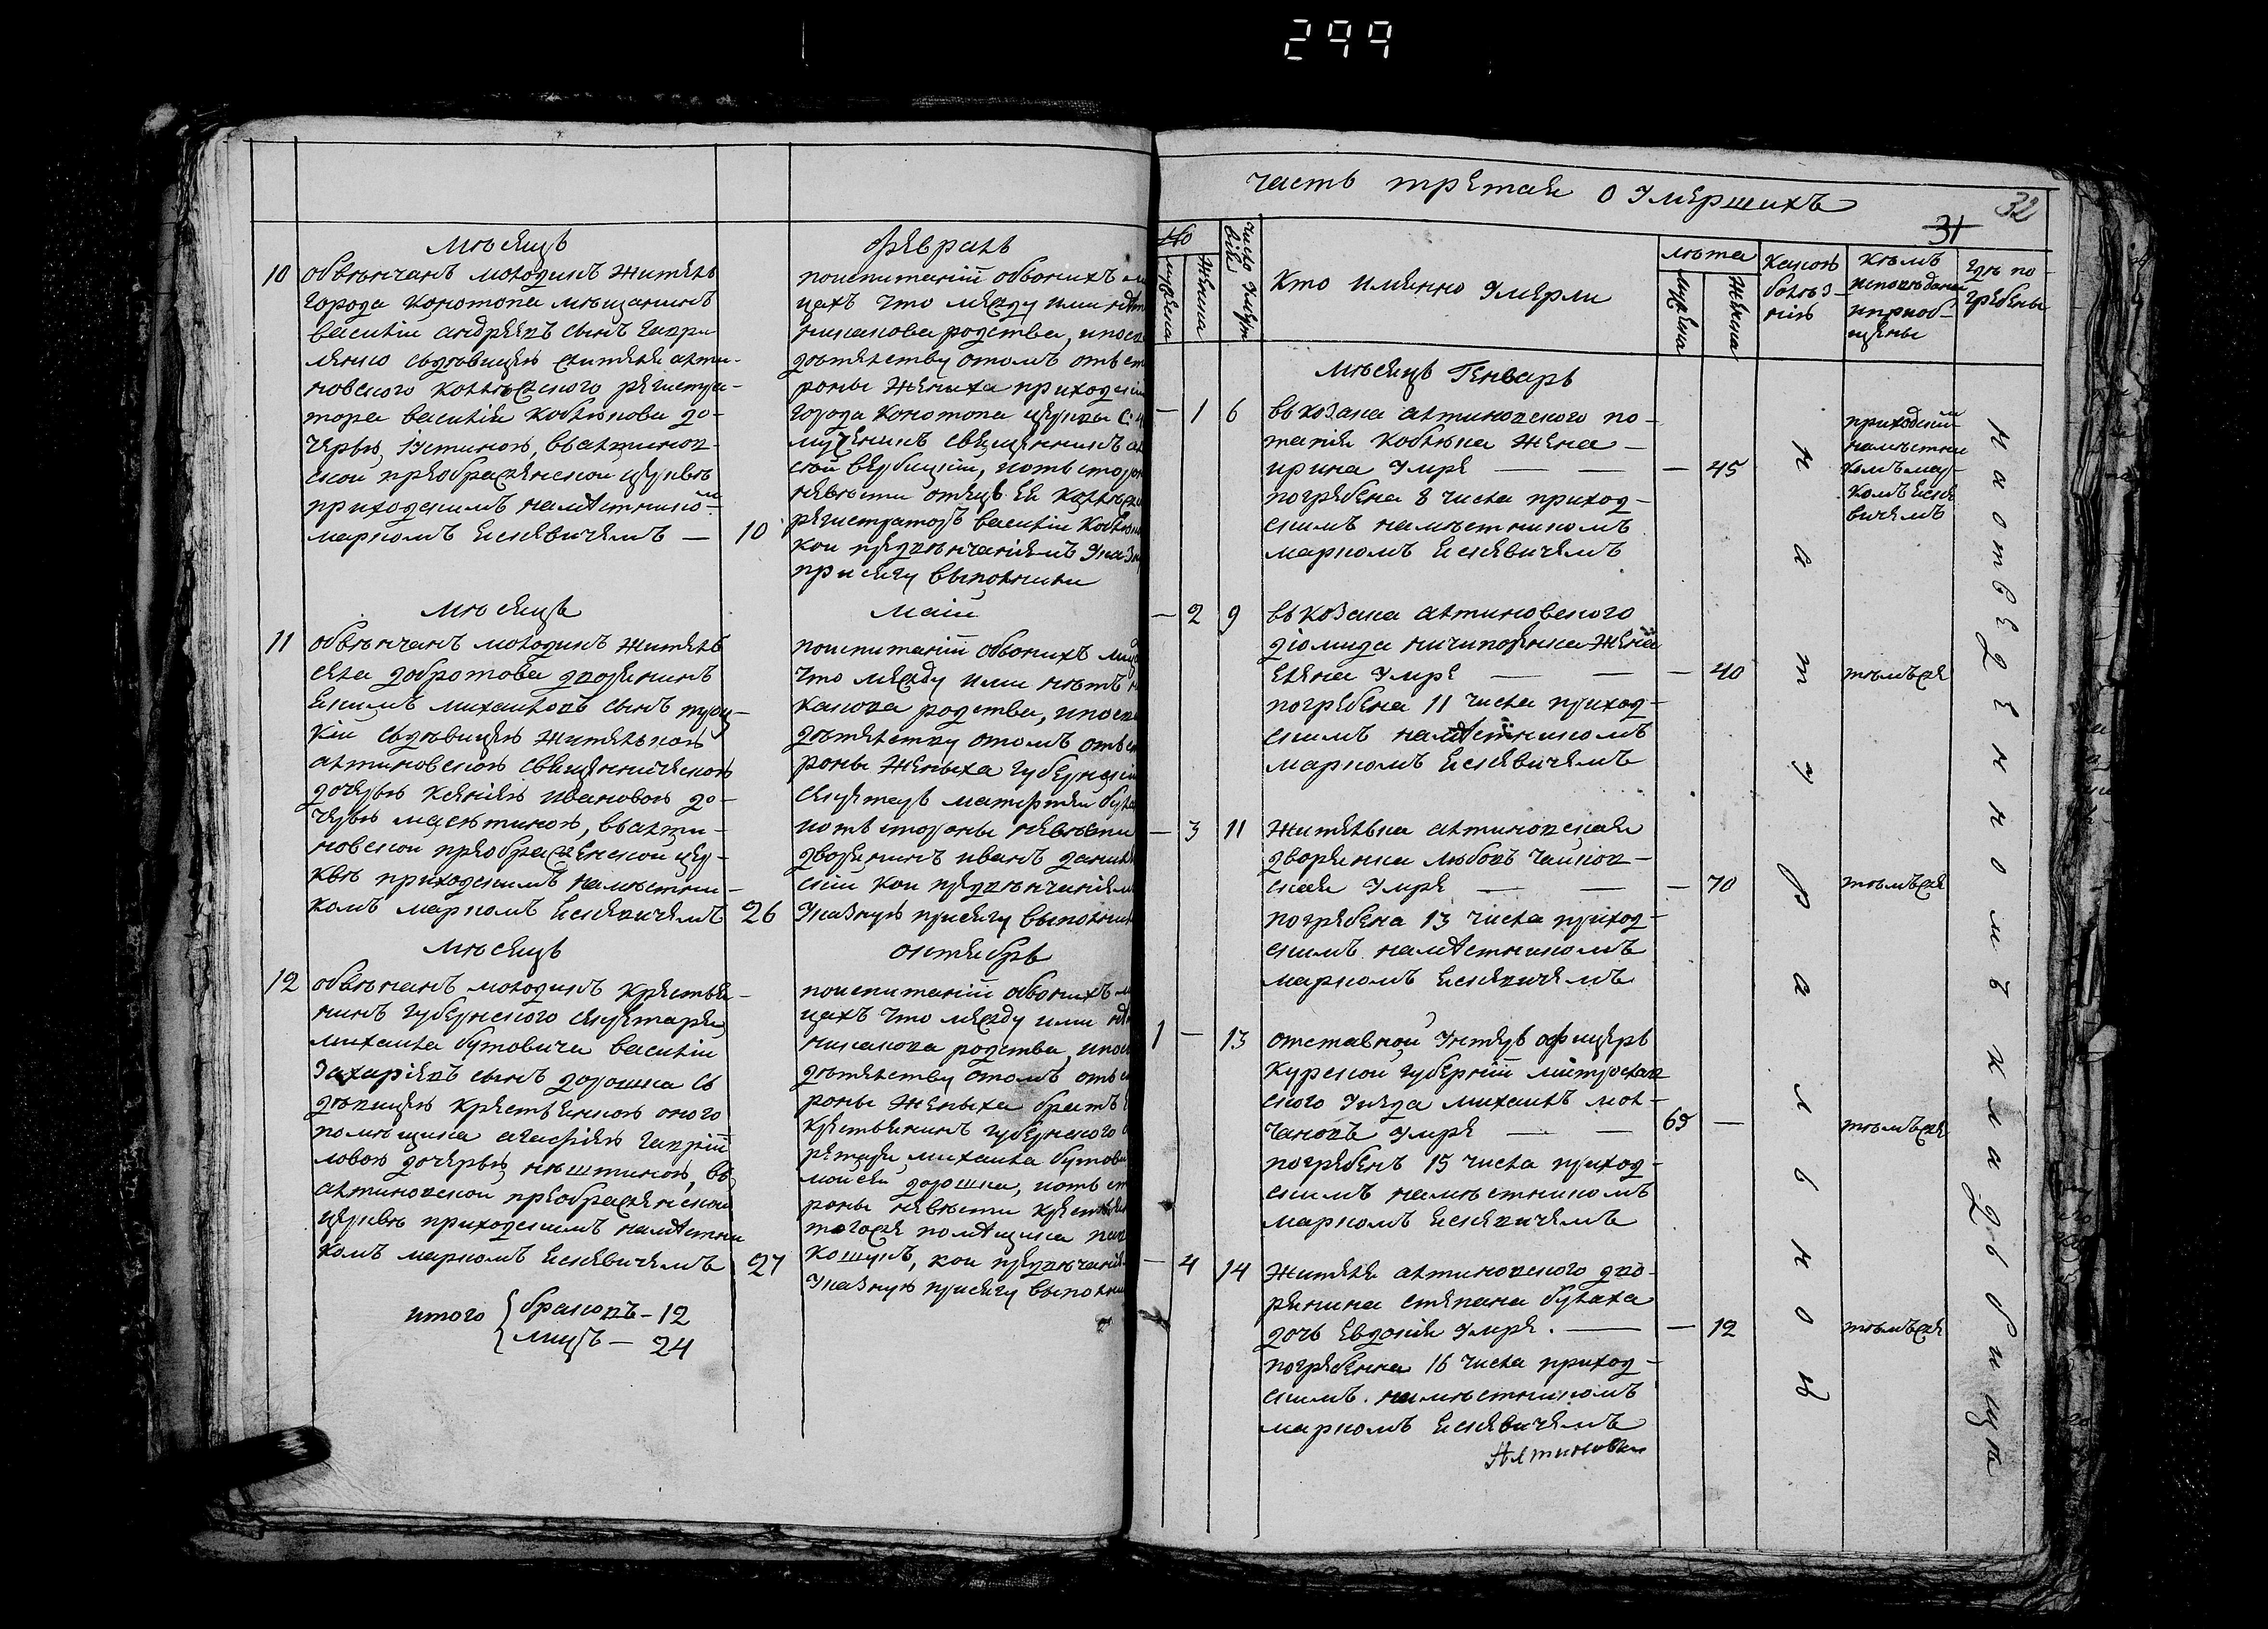 299
мѣсяцъ
10 обвѣнчанъ молодикъ житель
города конотопа мѣщанинъ
василіи андреевъ сынъ гаври-
ленко сдѣвицею жителя алти-
новского коллежского регистра-
тора василія
черью Іустиною, валтинов-
скои преображенскои церквѣ
приходскимъ намѣстнико-
маркомъ Ескевичемъ — 10
февраль
поиспитаніи обоонихъ ли
цахъ что между ими нѣт
никакова родства, ипосви
дѣтелству отомъ отъ ст
роны жениха приходскій
города конотопа церкви
мученикъ священникъ
вербицкіи, иотъ сторон
невѣсти отецъ Ея коллежск
регистраторъ василіи
кои предвѣнчаніемъ указн
присягу выполнили
мѣсяцъ
11 обвѣнчанъ молодикъ житель
села добротова дворянинъ
Екимъ михаиловъ сынъ троц-
кіи сдѣвицею жителькою
алтиновскою священническою
дочерью ксеніею ивановою до-
черью валти-
новскои преображенскои цер-
квѣ приходскимъ намѣстни-
комъ маркомъ Ескевичемъ 26
маіи
поиспитаніи обоонихъ лиц
что между ими нѣтъ н
какова родства, ипосви
дѣтелству отомъ отъ ст
роны жениха губернскіи
секретарь
иотъ стороны невѣсти
дворянинъ иванъ
скіи кои предвѣнчаніем
указную присягу выполнили
мѣсяцъ
12 обвѣнчанъ молодикъ крестья-
нинъ губернского секретаря
михаила бутовича василіи
захаріевъ сынъ дорошка съ
дѣвицею крестьянкою оного
помѣщика агафіею гавріи
ловою дочерью въ
алтиновскои преображенскои
церквѣ приходскимъ намѣстни
комъ маркомъ Ескевичемъ 27
октябрь
поиспитаніи обоонихъ ли
цахъ что между ими нѣт
никакова родства, ипосви
дѣтелству отомъ отъ ст
роны жениха братъ
крестьянинъ губернского с
ретаря михаила бутови
моисеи дорошка, иотъ ст
роны невѣсти крестьян
тогоже помѣщика
кои предвѣнчаніем
указную присягу выполни
итого браковъ — 12
лицъ — 24
часть третая о умершихъ
32
31
число
мужеска
женска
Кто именно умерли
лѣта
мужеска
женска
Какою болѣз-
нію
Кѣмъ
исповѣдани
ипріоб-
щены
гдѣ по-
гребены
мѣсяцъ Генварь
— 1 6 вкозака алтиновского по-
тапія кобзѣка жена —
ирина умре — — — 45
погребена 8 числа приход-
скимъ намѣстникомъ
маркомъ Ескевичемъ
приходскимъ
намѣстни
комъ мар-
комъ Еске
вичемъ
— 2 9 вкозака алтиновского
діомида ничипоренка жена
Елена умре — — — 40 тѣмъже
погребена 11 числа приход-
скимъ намѣстникомъ
маркомъ Ескевичемъ
— 3 11 жителька алтиновская
дворянка любовъ чаиков-
ская умре — — — 70 тѣмъже
погребена 13 числа приход-
скимъ намѣстникомъ
маркомъ Ескевичемъ
1 — 13 отставнои унтеръ офицеръ
Курскои губерніи
ского уезда михаилъ мол-
чановъ умре — — 65 — тѣмъже
погребенъ 15 числа приход-
скимъ намѣстникомъ
маркомъ Ескевичемъ
— 4 14 жителя алтиновского дво-
рянина степана булаха
дочь Евдокія умре. — — 12 тѣмъже
погребенна 16 числа приход-
скимъ намѣстникомъ
маркомъ Ескевичемъ
Алтиновки
натуральною
наотведенномъ кладбищѣ